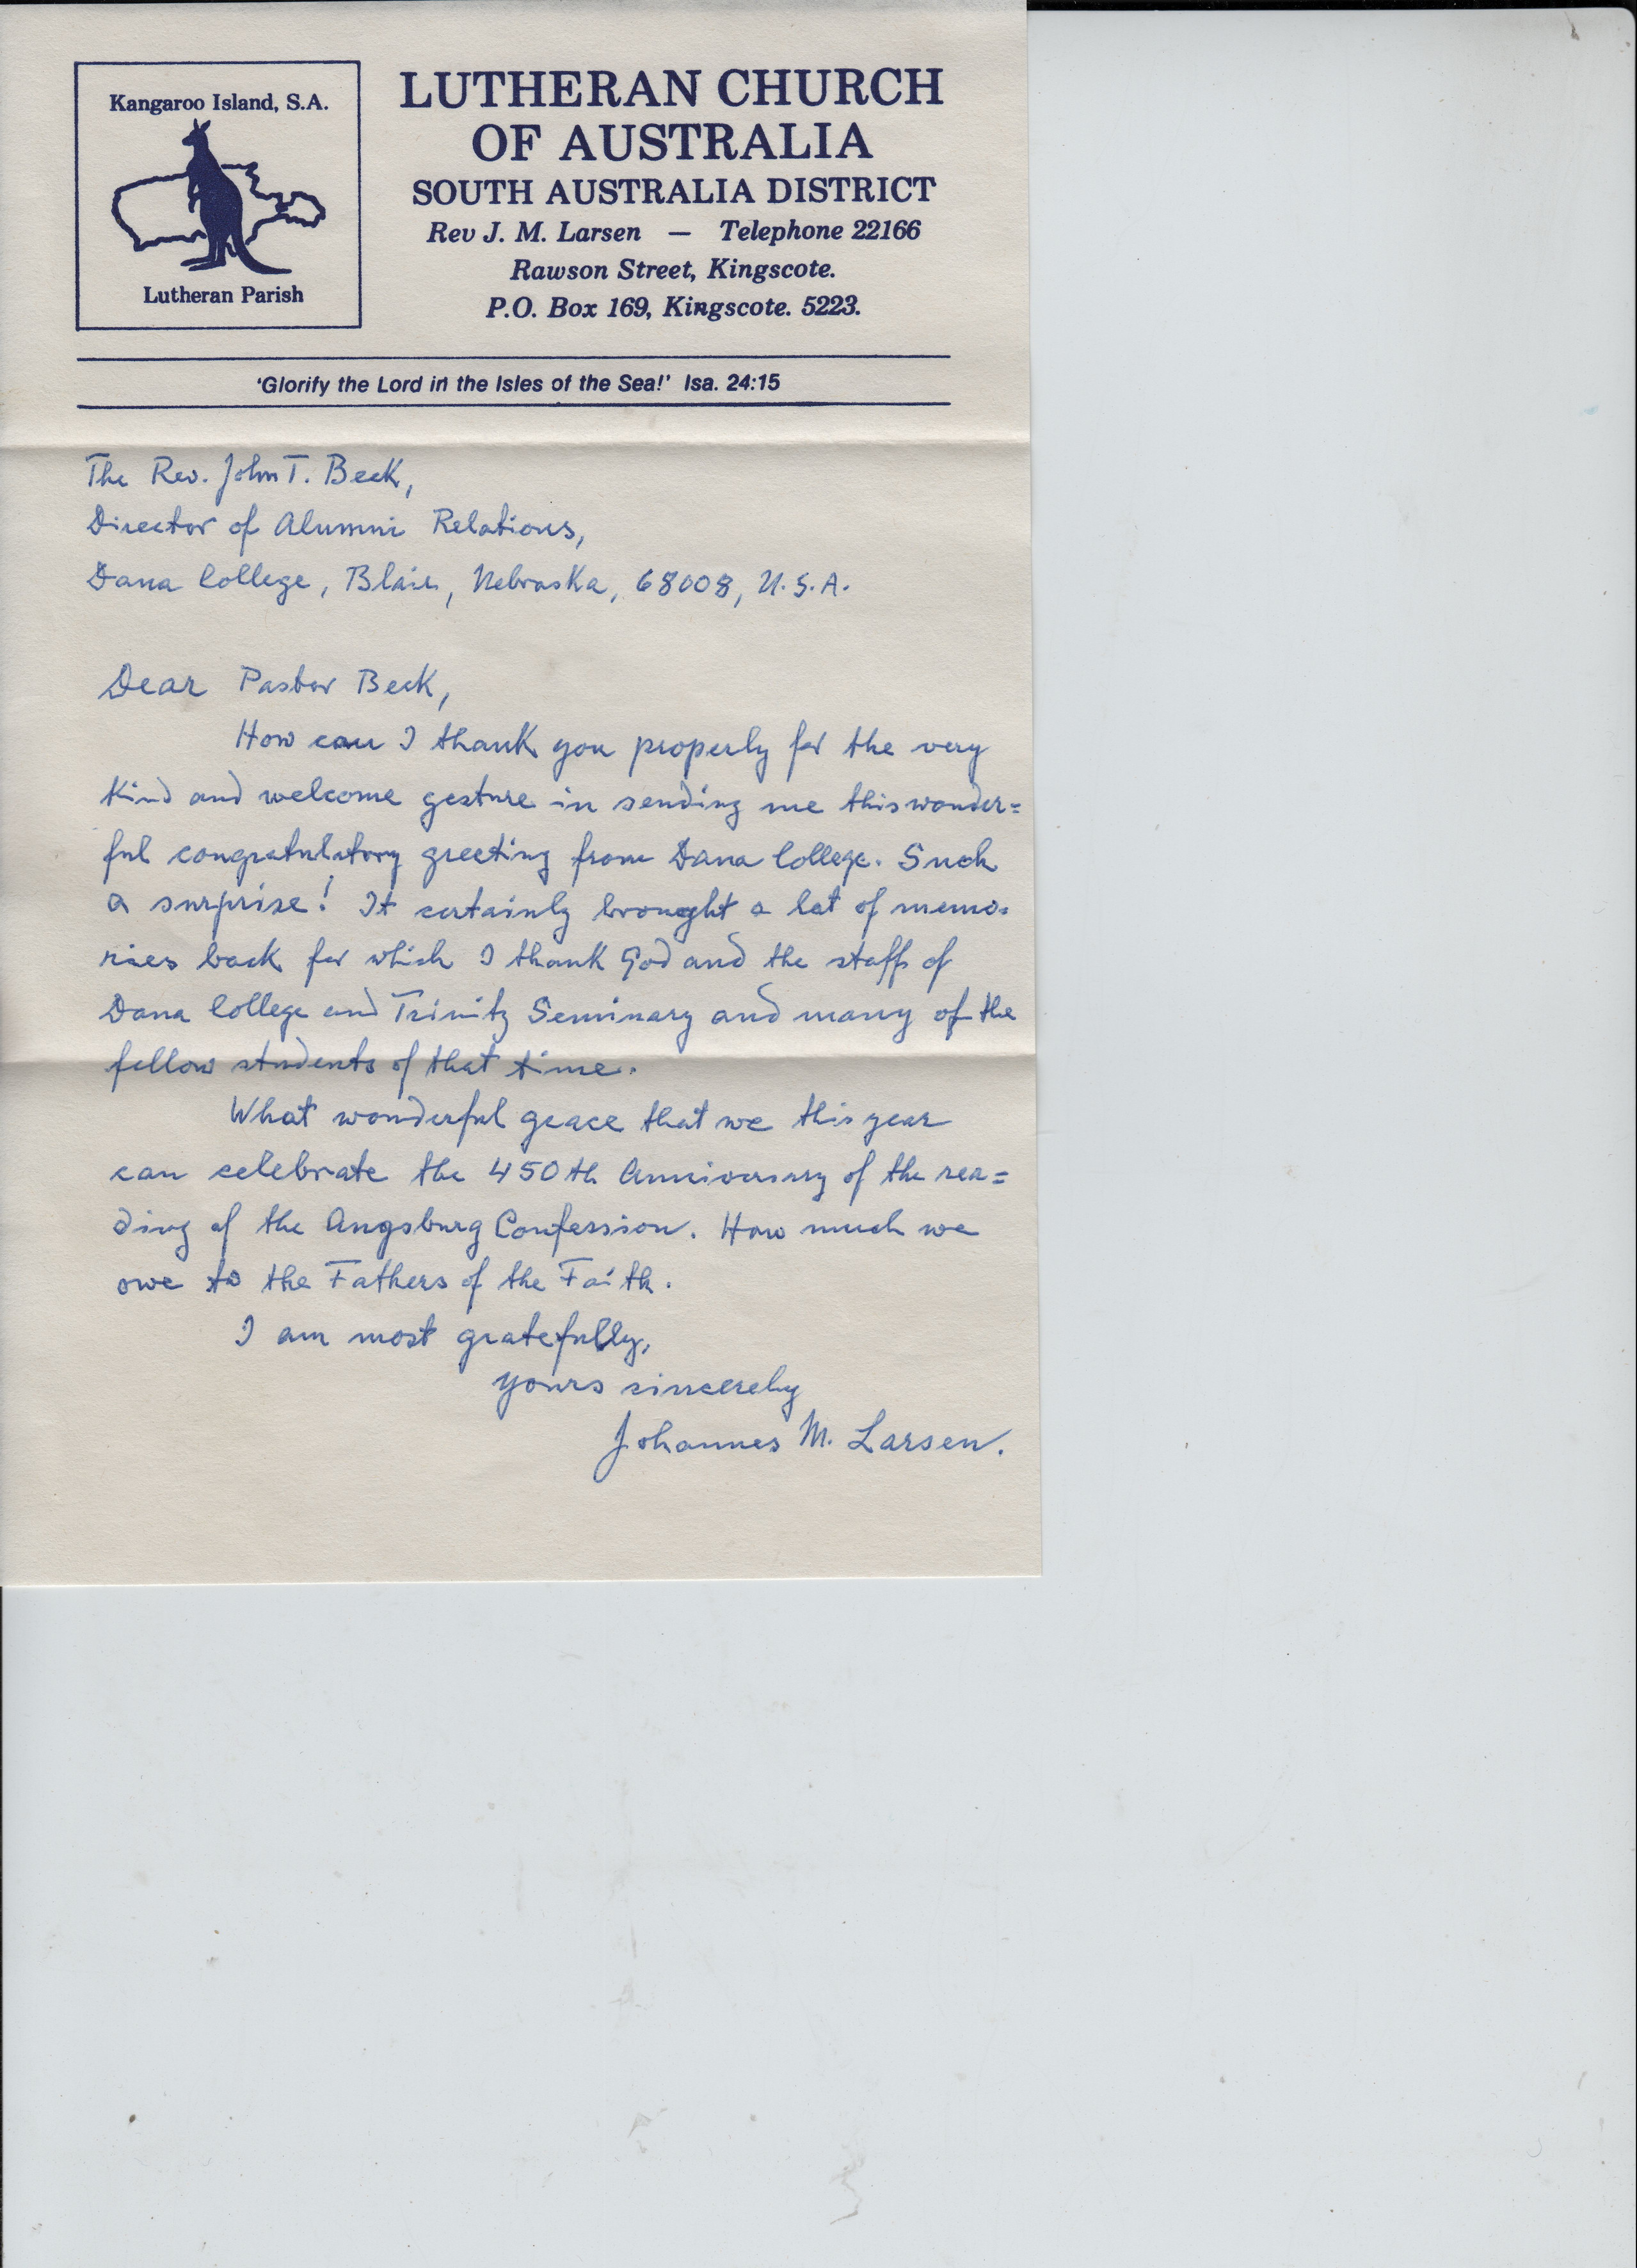 Kangaroo Island, S.A.
Lutheran Parish
LUTHERAN CHURCH
OF AUSTRALIA
SOUTH AUSTRALIA DISTRICT
Rev J. M. Larsen — Telephone 22166
Rawson Street, Kingscote.
P.O. Box 169, Kingscote. 5223.
'Glorify the Lord in the Isles of the Sea!' Isa. 24:15
The Rev. John T. Beck,
Director of Alumni Relations,
Dana College, Blair, Nebraska, 68008, U.S.A.
Dear Pastor Beck,
How can I thank you properly for the very
kind and welcome gesture in sending me this wonder=
ful congratulatory greeting from Dana College. Such
a surprise! It certainly brought a lot of memo=
ries back for which I thank God and the staff of
Dana College and Trinity Seminary and many of the
fellow students of that time.
What wonderful grace that we this year
can celebrate the 450th Anniversary of the rea=
ding of the Augsburg Confession. How much we
owe to the Fathers of the Faith.
I am most gratefully,
yours sincerely
Johannes M. Larsen.